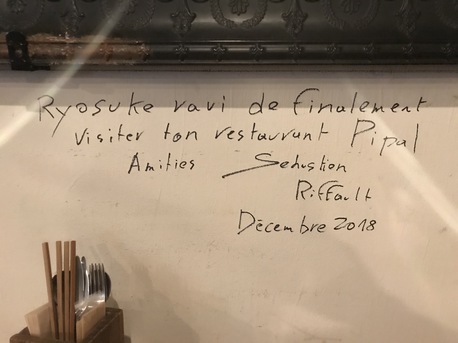 Ryosuke ravi de finalement
visiter ton restaurant Pipal
Amities Sebastien
Riffault
Décembre 2018